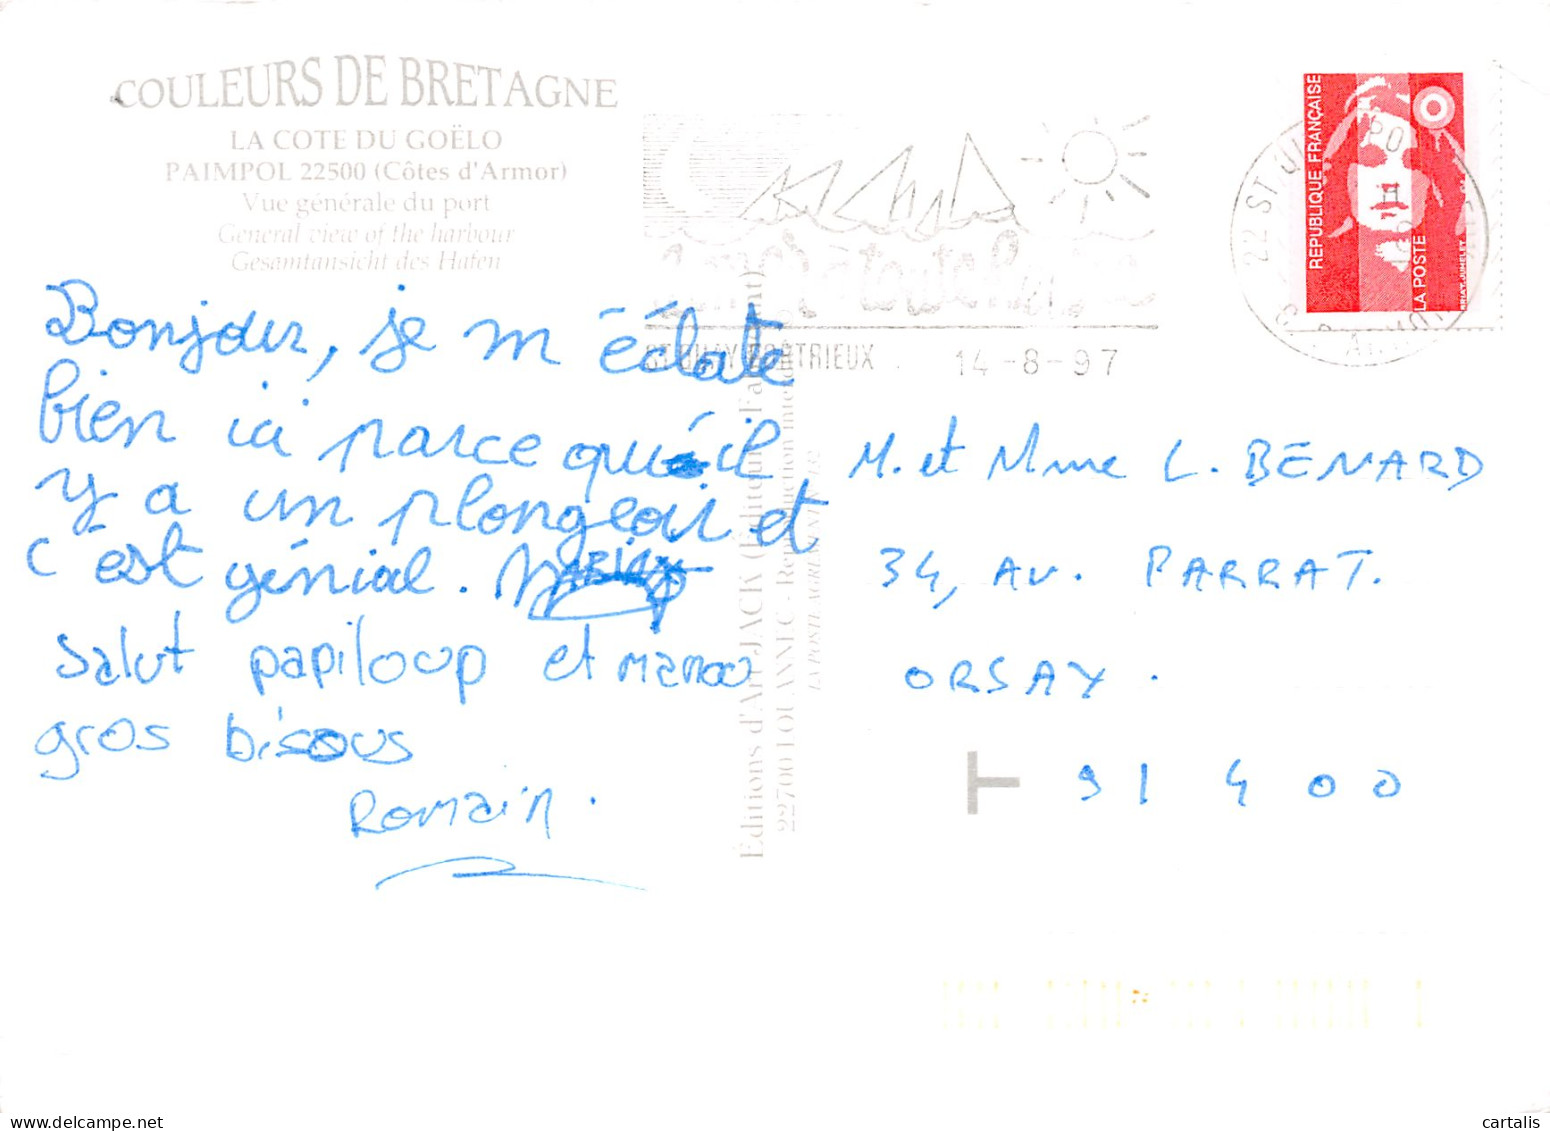 COULEURS DE BRETAGNE
LA COTE DU GOËLO
PAIMPOL 22500 (Côtes d'Armor)
Vue générale du port
General view of the harbour
Gesamtansicht des Hafen
Bonjour, je m'éclate
bien ici parce qu'il
y a un plongeoir et
c'est génial.
Salut papiloup et manou
gros bisous
Romain.
Éditions d'Art JACK
22700 LOUANNEC
ST QUAY PORTRIEUX
14-8-97
RÉPUBLIQUE FRANÇAISE
LA POSTE
22 ST QUAY
M. et Mme L. BENARD
34, AV. PARRAT.
ORSAY.
T 91 400
cartalis